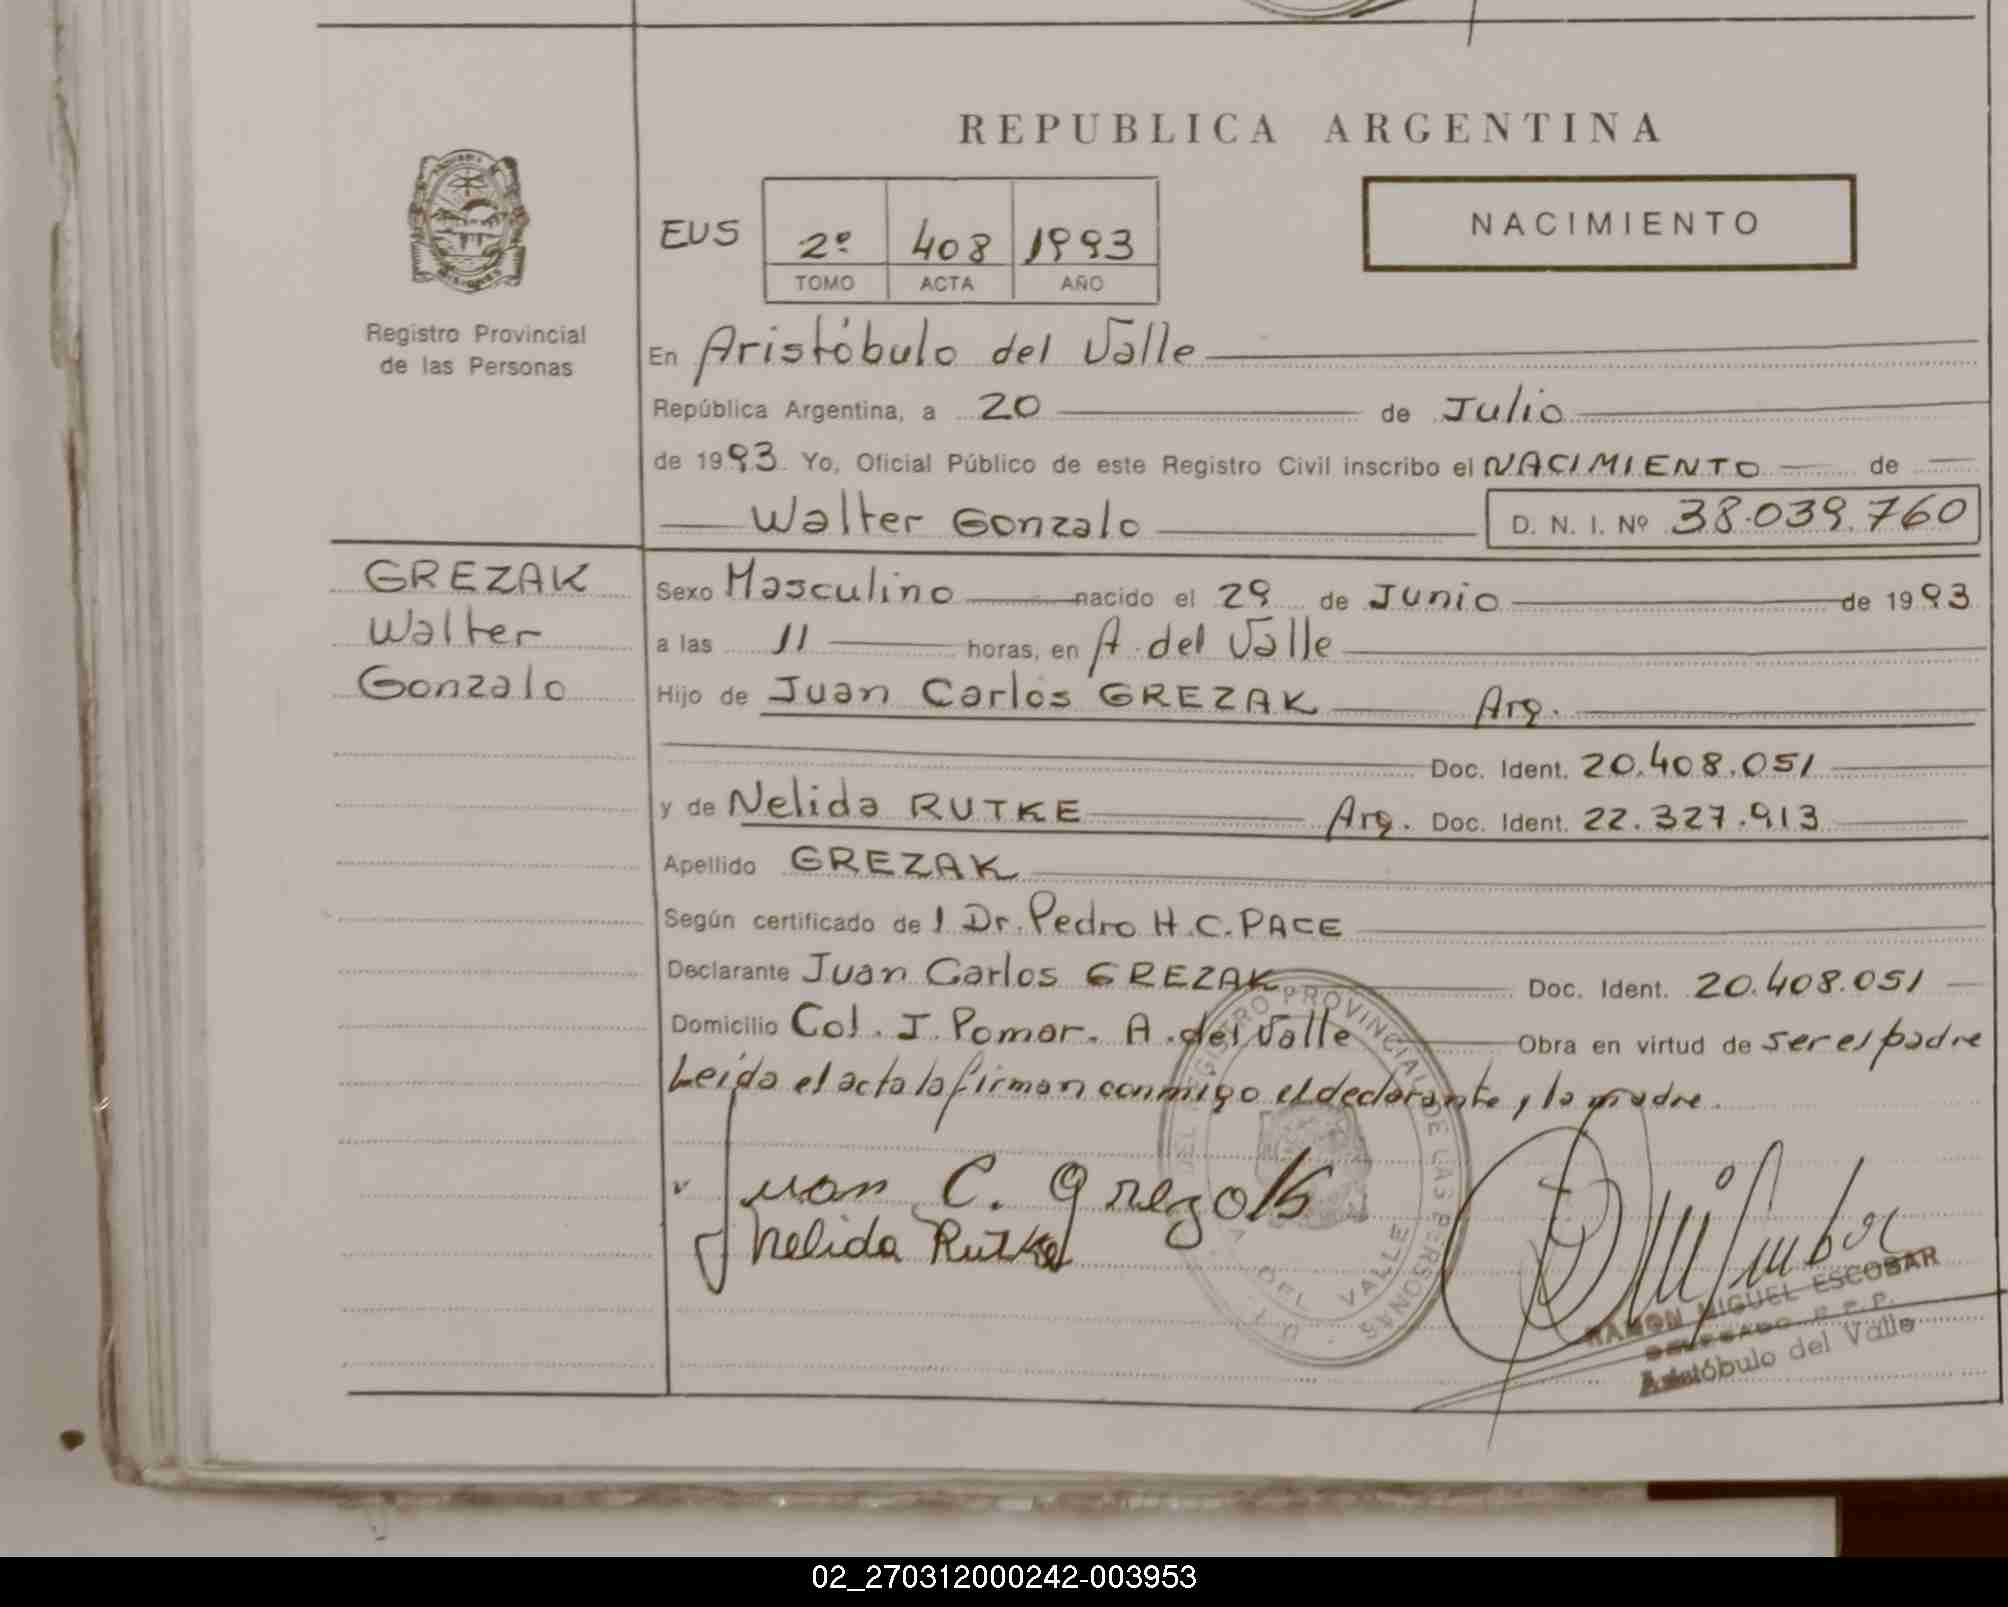 REPUBLICA ARGENTINA
NACIMIENTO
EUS 2º 408 1993
TOMO ACTA AÑO
Registro Provincial
de las Personas
En Aristóbulo del Valle
República Argentina, a 20 de Julio
de 1993. Yo, Oficial Público de este Registro Civil inscribo el NACIMIENTO de
Walter Gonzalo D. N. I. Nº 38.039.760
GREZAK
Walter
Gonzalo
Sexo Masculino nacido el 29 de Junio de 1993
a las 11 horas, en A. del Valle
Hijo de Juan Carlos GREZAK Arg.
Doc. Ident. 20.408.051
y de Nelida RUTKE Arg. Doc. Ident. 22.327.913
Apellido GREZAK
Según certificado de l Dr. Pedro H.C. PACE
Declarante Juan Carlos GREZAK Doc. Ident. 20.408.051
Domicilio Col. J. Pomar. A. del Valle Obra en virtud de ser el padre
Leída el acta la firman conmigo el declarante y la madre.
Juan C. Grezak
Nelida Rutke
REGISTRO PROVINCIAL DE LAS PERSONAS
DEL VALLE
RAMON MIGUEL ESCOBAR
DELEGADO R.P.P.
Aristóbulo del Valle
02_270312000242-003953